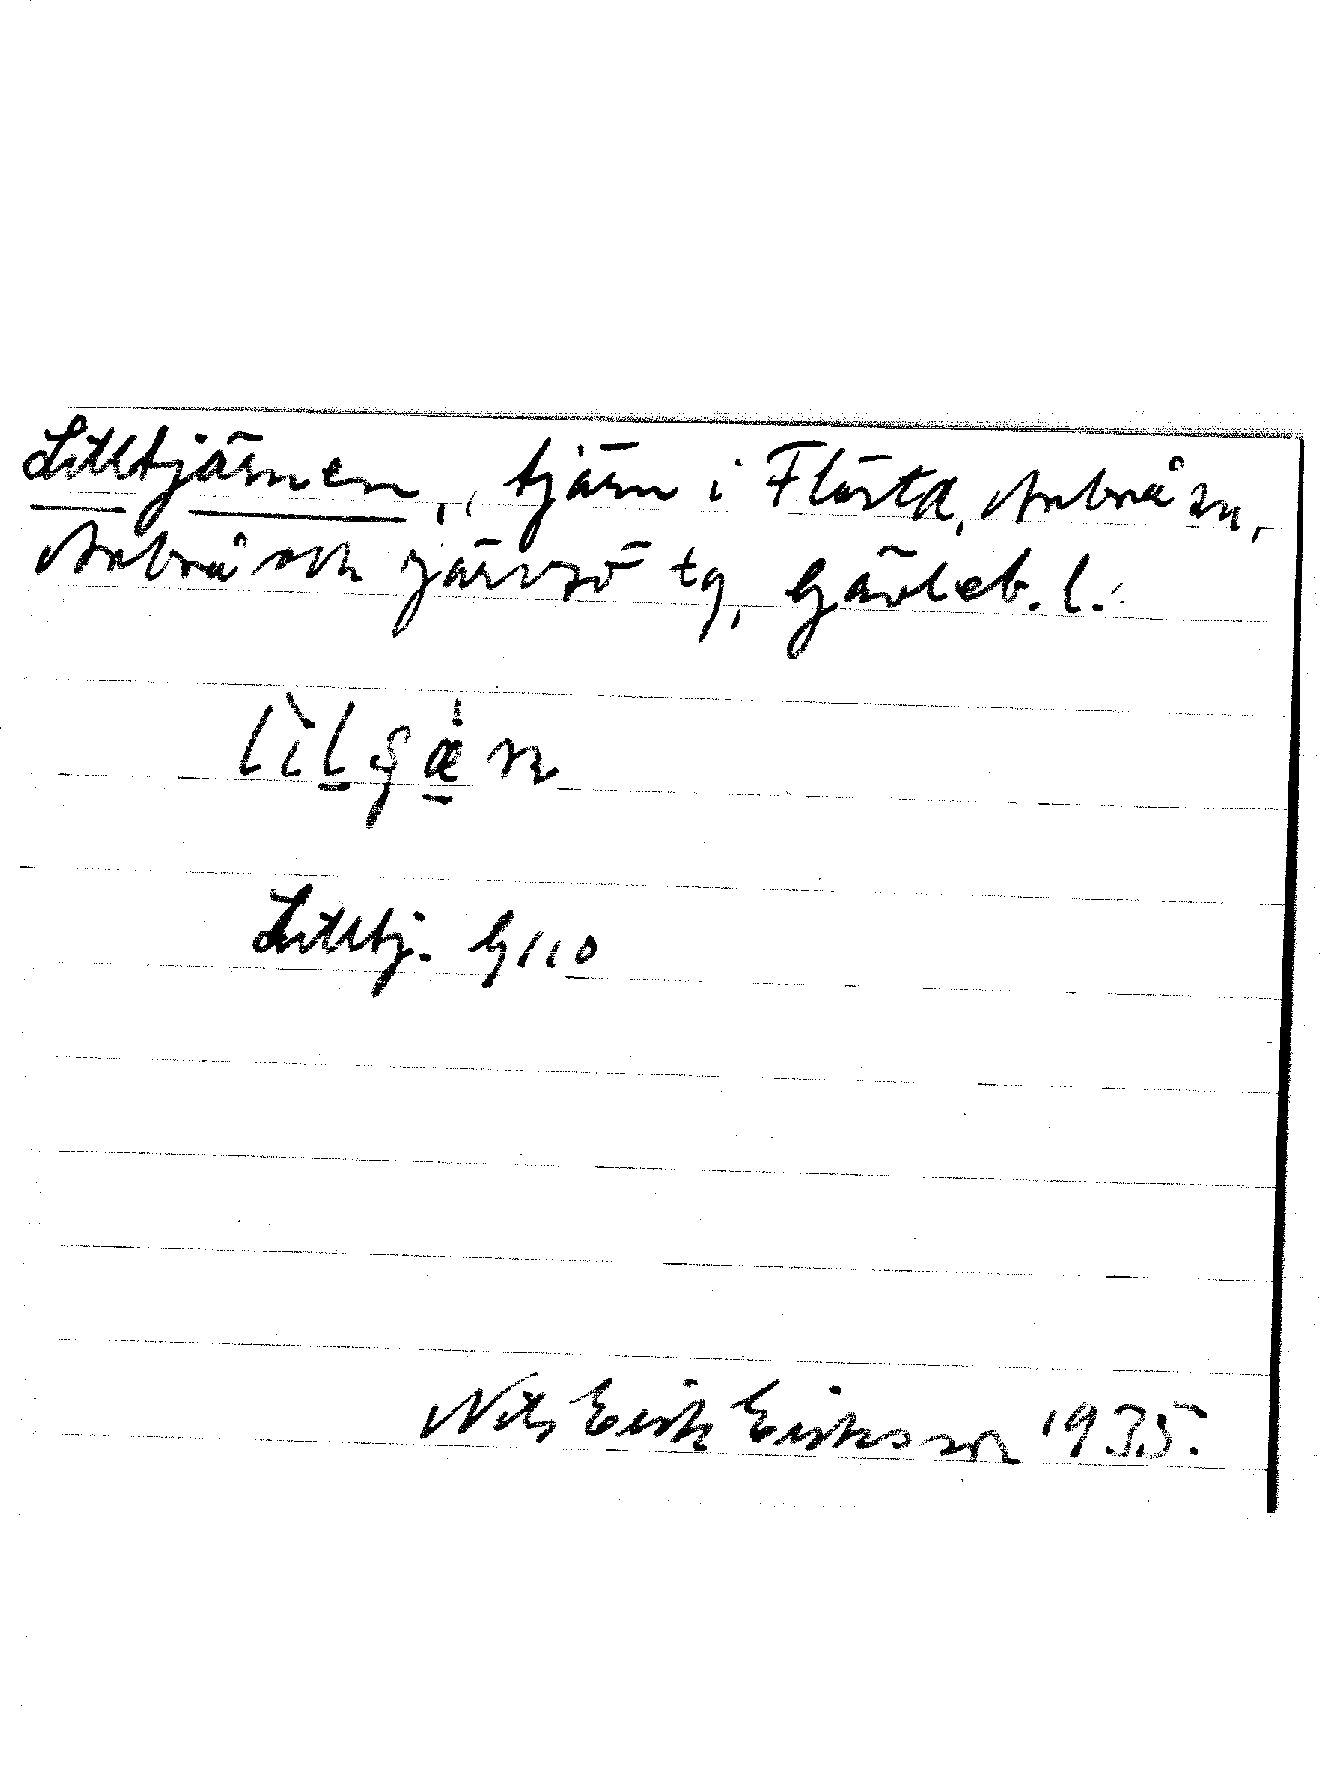 Lilltjärnen, tjärn i Flästa, Arbrå sn,
Arbrå och Järvsö tg, Gävleb. l.
Lilltj. G110
Nils Erik Eriksson 1935.